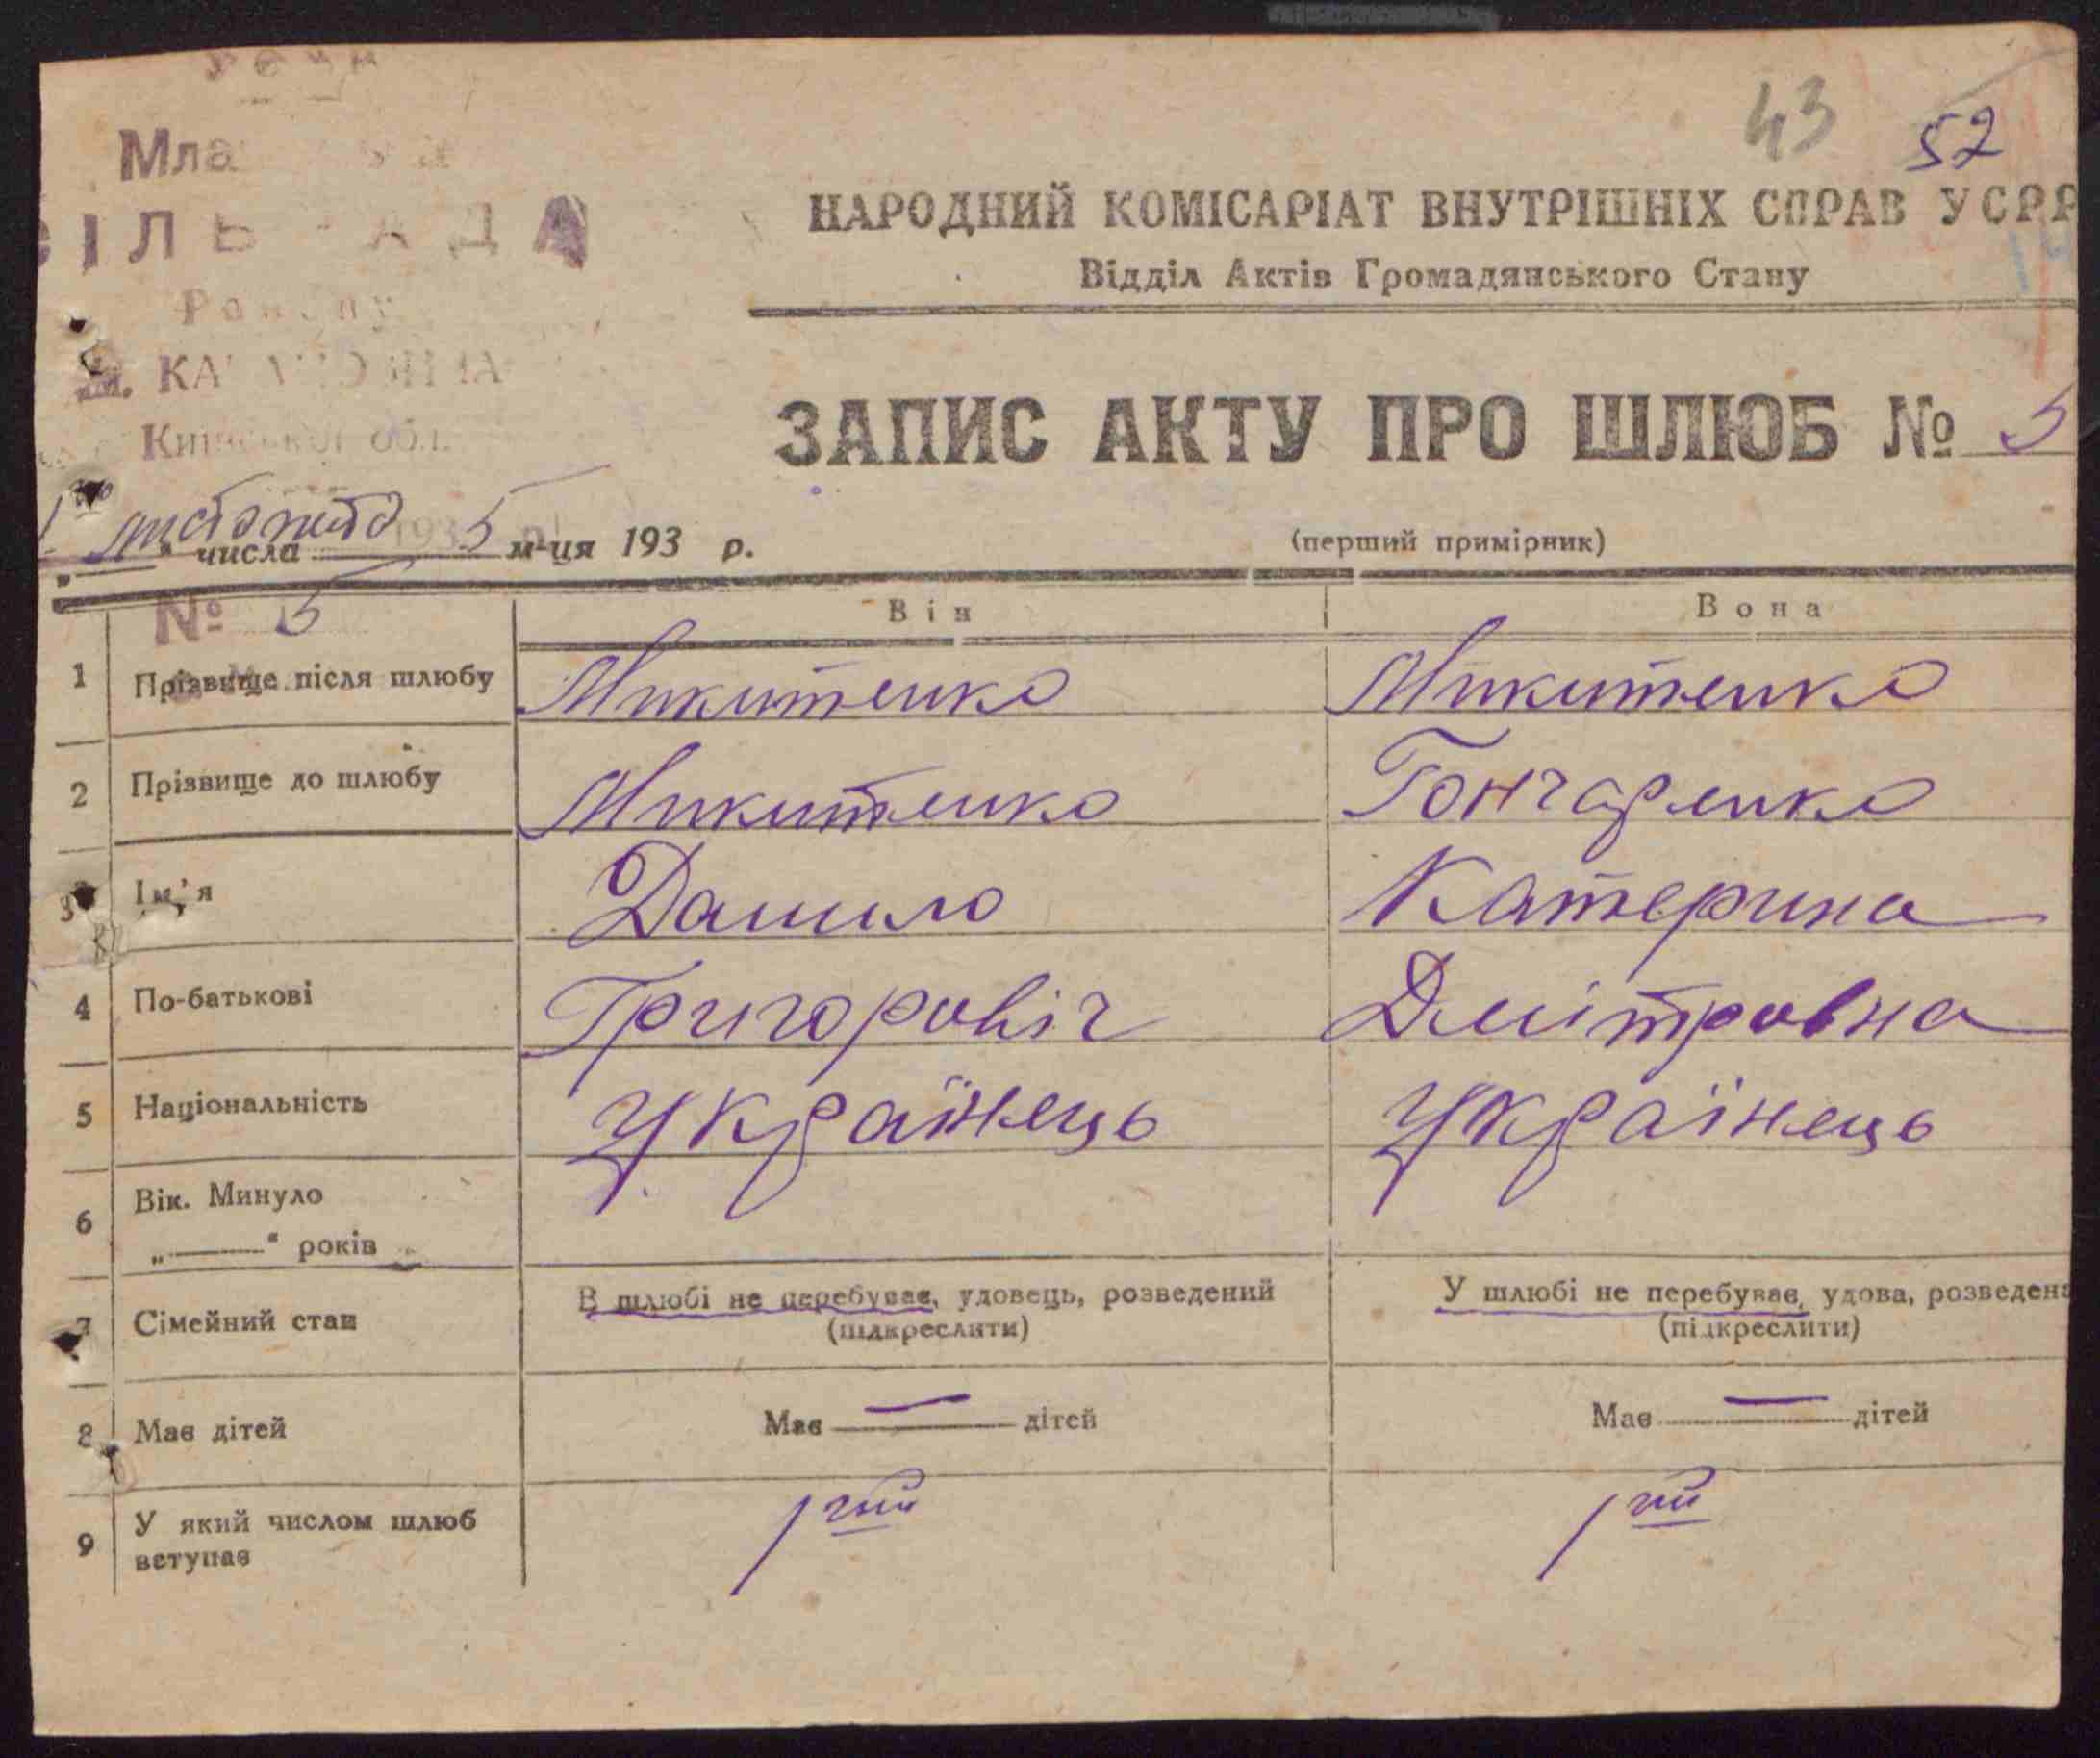 43 52
Мла
СІЛЬРАДА
Району
ім. КАГАНОВИЧА
Київської обл.
НАРОДНИЙ КОМІСАРІАТ ВНУТРІШНІХ СПРАВ УСРР
Відділ Актів Громадянського Стану
ЗАПИС АКТУ ПРО ШЛЮБ № 5
листопада 193 5
числа м-ця 193 р.
(перший примірник)
№ 5
Він Вона
1 Прізвище після шлюбу Микитенко Микитенко
2 Прізвище до шлюбу Микитенко Гончаренко
3 Ім'я Данило Катерина
4 По-батькові Григоровіч Дмітровна
5 Національність Українець Українець
6 Вік. Минуло
„——“ років
7 Сімейний стан В шлюбі не перебуває, удовець, розведений У шлюбі не перебуває, удова, розведена
(підкреслити) (підкреслити)
8 Має дітей Має — дітей Має — дітей
9 У який числом шлюб
вступає